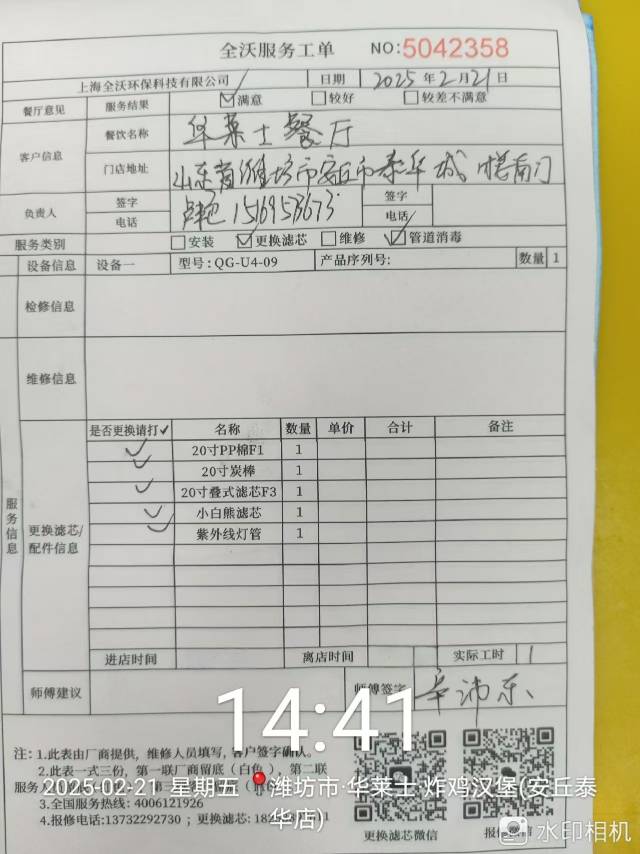 全沃服务工单 NO:5042358
上海全沃环保科技有限公司 日期 2025年2月21日
餐厅意见 服务结果 ☑满意 □较好 □较差不满意
客户信息 餐饮名称 华莱士餐厅
门店地址 山东省潍坊市安丘市泰华城 南门
负责人 签字 签字
电话 电话
服务类别 □安装 ☑更换滤芯 □维修 ☑管道消毒
设备信息 设备一 型号:QG-U4-09 产品序列号: 数量 1
检修信息
维修信息
服务信息
更换滤芯/配件信息
是否更换请打✓ 名称 数量 单价 合计 备注
✓ 20寸PP棉F1 1
✓ 20寸炭棒 1
✓ 20寸叠式滤芯F3 1
✓ 小白熊滤芯 1
✓ 紫外线灯管 1
进店时间 离店时间 实际工时 1
师傅建议 师傅签字 辛沛东
14:41
注: 1.此表由厂商提供，维修人员填写，客户签字确认。
2.此表一式三份，第一联厂商留底（白色），第二联
服务
3.全国服务热线: 4006121926
4.报修电话:13732292730 ; 更换滤芯: 18
更换滤芯微信
2025-02-21 星期五 潍坊市·华莱士·炸鸡汉堡(安丘泰
华店)
水印相机